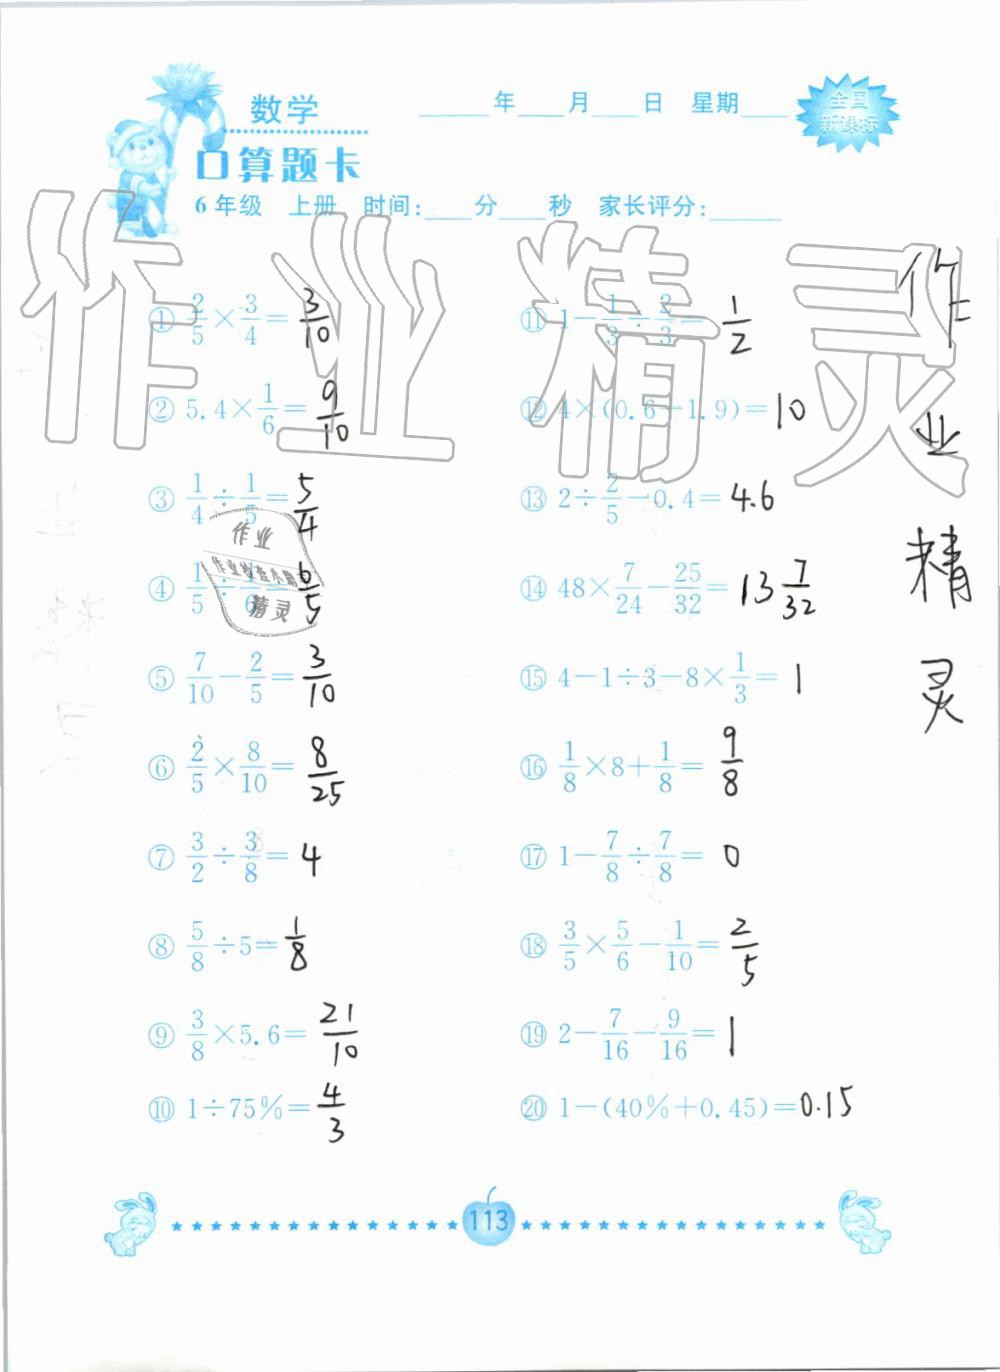 数学
____年____月____日 星期____
全国
新课标
口算题卡
6年级 上册 时间:____分____秒 家长评分:____
作业精灵
作
业
精
灵
① 2/5 × 3/4 = 3/10
② 5.4 × 1/6 = 9/10
③ 1/4 ÷ 1/5 = 5/4
作业
作业检查小助
精灵
④ 1/5 ÷ 1/6 = 6/5
⑤ 7/10 - 2/5 = 3/10
⑥ 2/5 × 8/10 = 8/25
⑦ 3/2 ÷ 3/8 = 4
⑧ 5/8 ÷ 5 = 1/8
⑨ 3/8 × 5.6 = 21/10
⑩ 1 ÷ 75% = 4/3
⑪ 1 - 1/3 ÷ 2/3 = 1/2
⑫ 4 × (0.6 + 1.9) = 10
⑬ 2 ÷ 2/5 - 0.4 = 4.6
⑭ 48 × 7/24 - 25/32 = 13 7/32
⑮ 4 - 1 ÷ 3 - 8 × 1/3 = 1
⑯ 1/8 × 8 + 1/8 = 9/8
⑰ 1 - 7/8 ÷ 7/8 = 0
⑱ 3/5 × 5/6 - 1/10 = 2/5
⑲ 2 - 7/16 - 9/16 = 1
⑳ 1 - (40% + 0.45) = 0.15
113